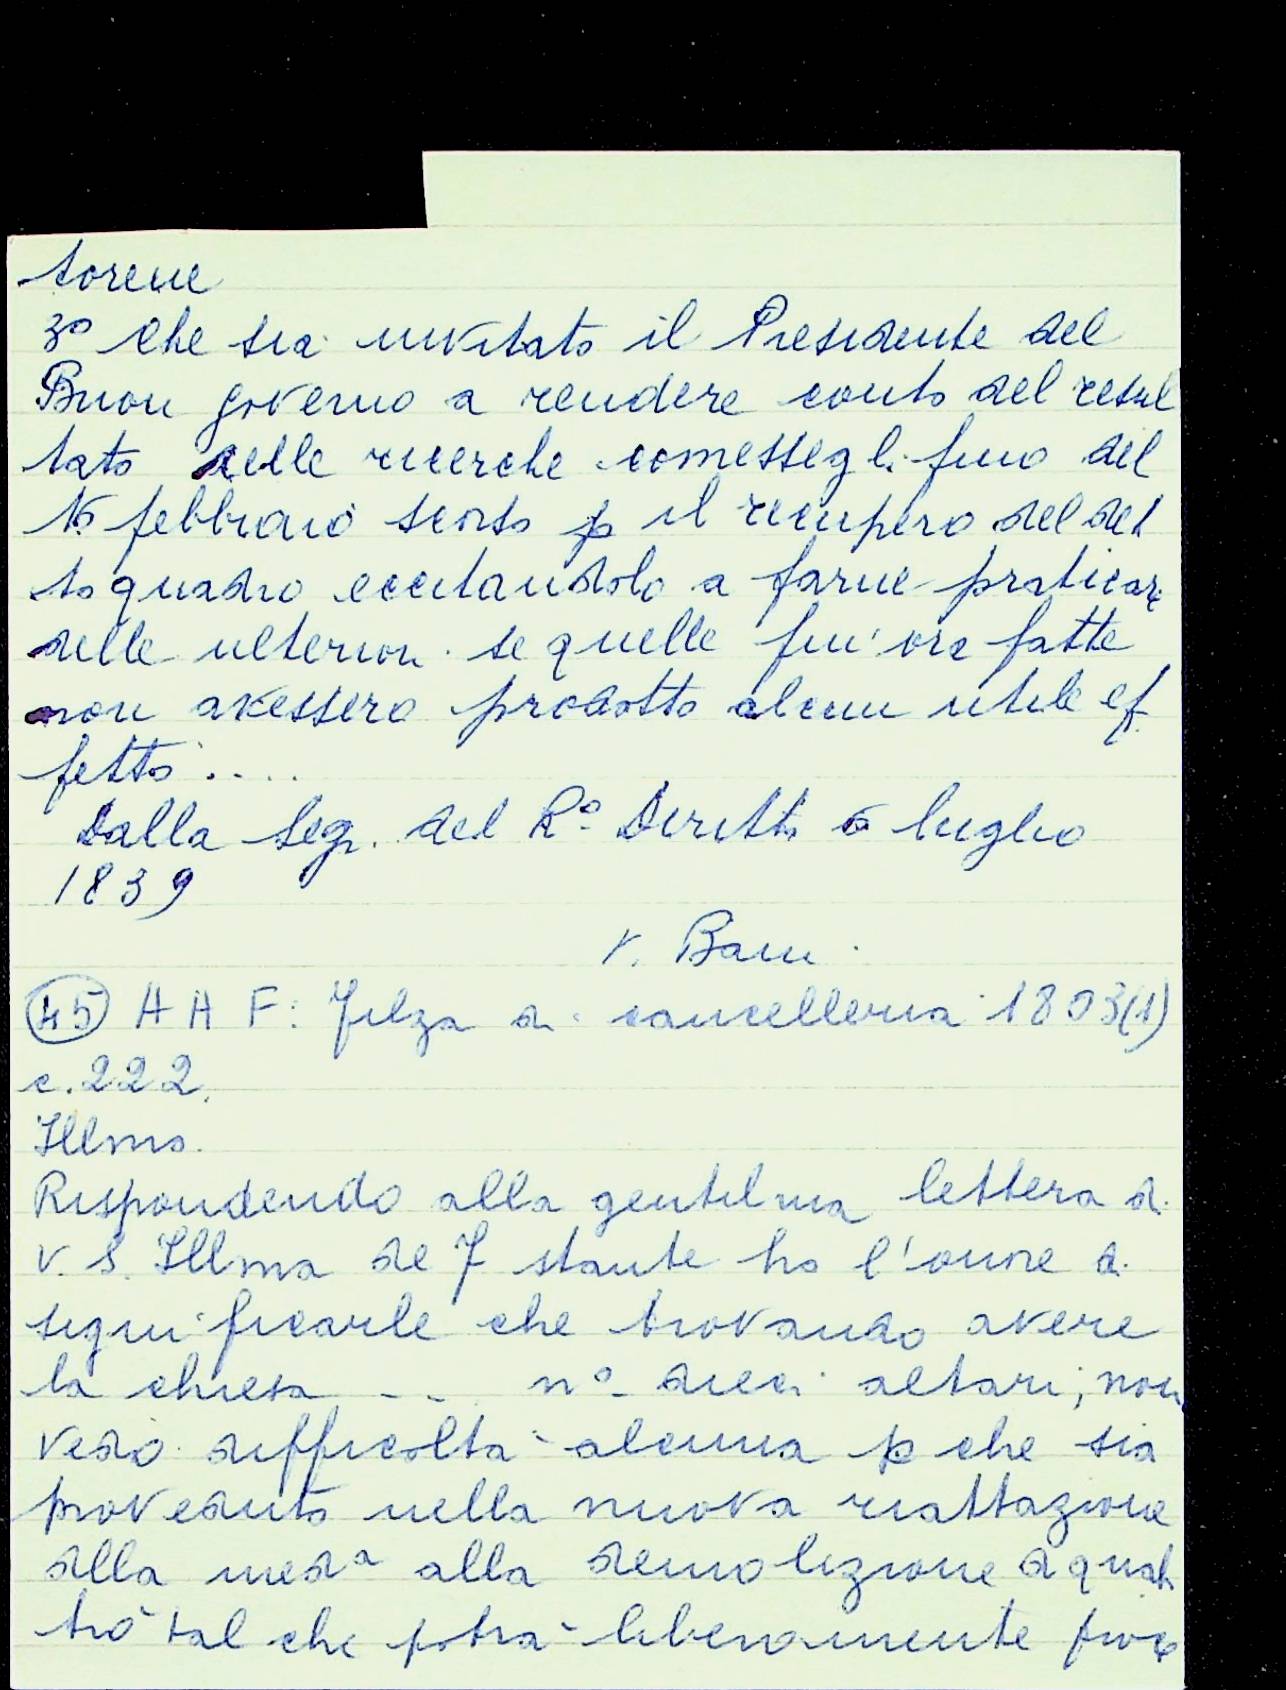 torene
3º che sia invitato il Presidente del
Buon governo a rendere conto del resul
tato delle ricerche comessegli fino del
16 febbraio scorso p il recupero del det
to quadro eccitandolo a farne praticare
delle ulteriori se quelle fin'ora fatte
non avessero prodotto alcun utile ef
fetto ....
Dalla Seg. del Rº Diritto 6 luglio
1839
V. Bani
45 A A F: Filza di cancelleria 1803(1)
c. 222.
Illmo.
Rispondendo alla gentilma lettera di
V. S. Illma de 7 stante ho l'onore di
significarle che trovando avere
la chiesa - - nº dieci altari, non
vedo difficoltà alcuna p che sia
proveduto nella nuova riattazione
alla medª alla demolizione di quat
tro tal che potrà liberamente fare